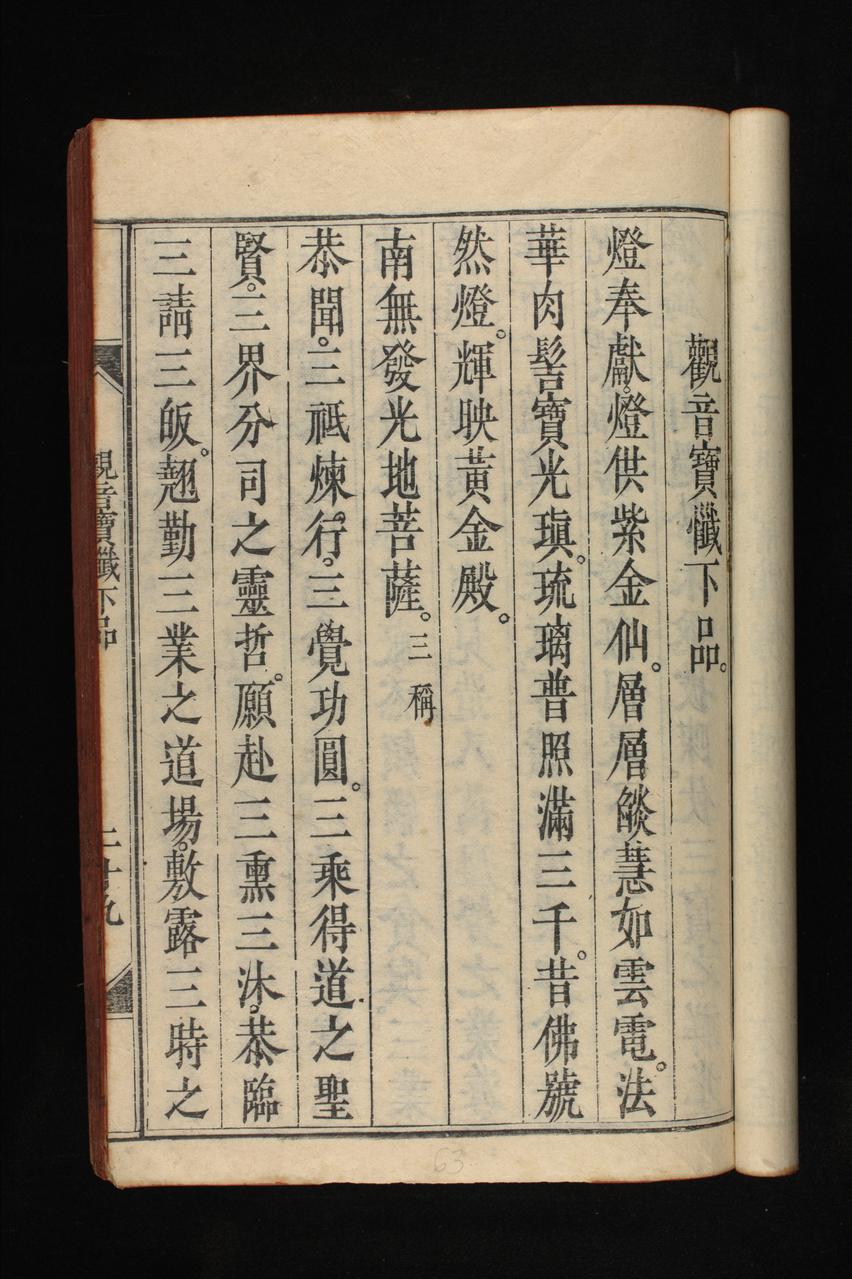 觀音寶懺下品。
燈奉獻。燈供紫金仙。層層燄慧如雲電。法
華肉髻寶光瑱。琉璃普照滿三千。昔佛號
然燈。輝映黃金殿。
南無發光地菩薩。三稱
恭聞。三祇煉行。三覺功圓。三乘得道之聖
賢。三界分司之靈哲。願赴三熏三沐。恭臨
三請三皈。翹勤三業之道場。敷露三時之
觀音寶懺下品
二十九
63